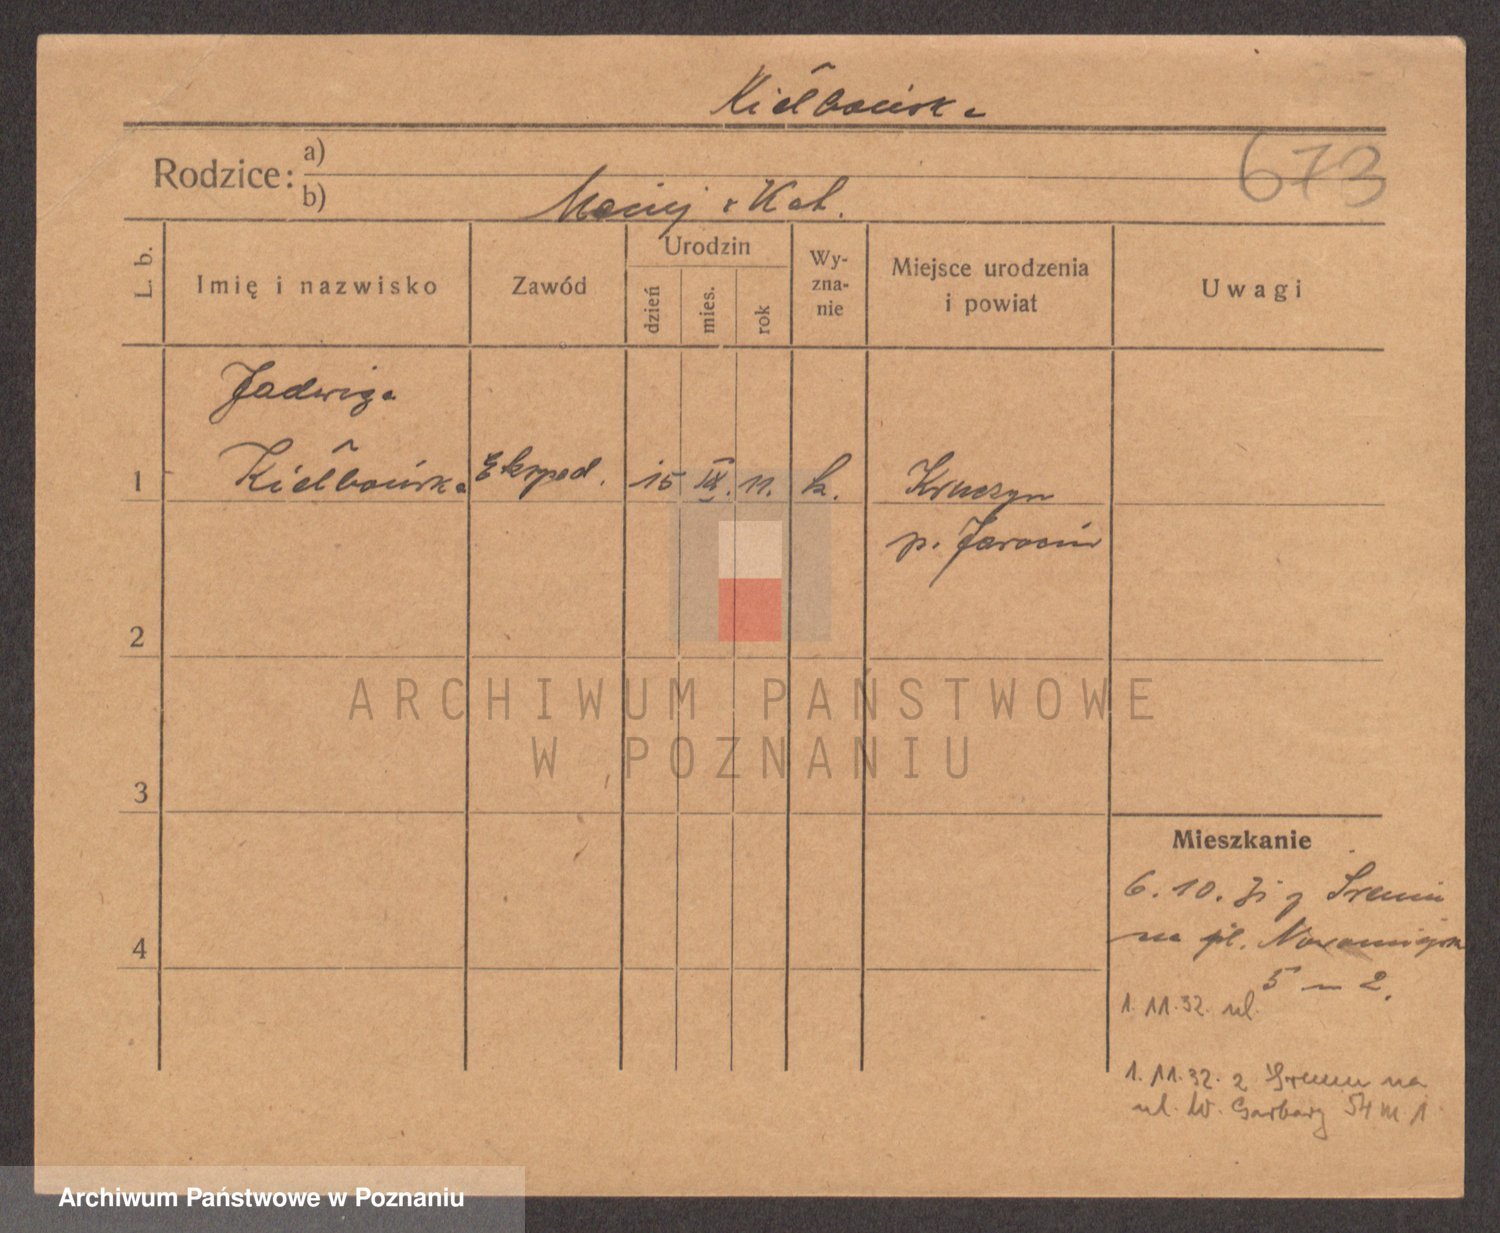 Kiełbasińska
673
Rodzice: a)
b) Maciej & Kat.
L. b.
Imię i nazwisko
Zawód
Urodzin
dzień
mies.
rok
Wy-
zna-
nie
Miejsce urodzenia
i powiat
Uwagi
Jadwiga
1 Kiełbasińska Eksped. 15 IX. 11. k. Kruczyn
p. Jarocin
2
ARCHIWUM PAŃSTWOWE
W POZNANIU
3
Mieszkanie
6. 10. 31 z Śremu
na pl. Nowomiejski
4
5 m 2.
1. 11. 32. ul.
1. 11. 32. z Śremu na
ul. W. Garbary 54 m 1
Archiwum Państwowe w Poznaniu